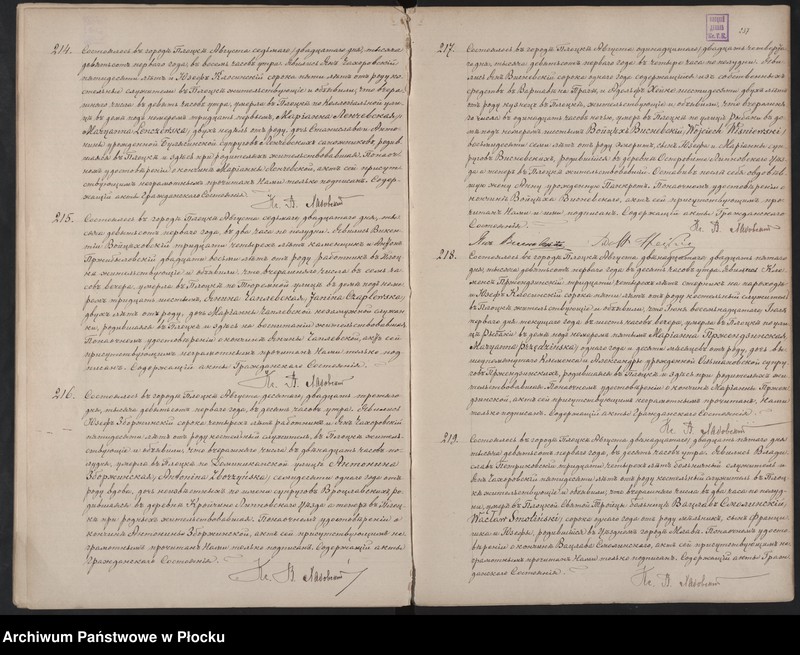 214. Состоялось въ городѣ Плоцкѣ Августа седьмаго /двадцатаго дня/ тысяча
девятьсотъ перваго года, въ восемь часовъ утра. Явились Янъ Чаховскій
пятидесяти лѣтъ и Юзефъ Клосинскій сорока пяти лѣтъ отъ роду ко-
стельные служители въ Плоцкѣ жительствующіе и объявили, что вчераш-
няго числа въ девять часовъ утра, умерла въ Плоцкѣ по улицѣ
въ домѣ подъ номеромъ тридцать первымъ, Маріанна Ленчевская,
Maryanna Lenczewska, двухъ недѣль отъ роду, дочь Станислава и Анто-
нины урожденной супруговъ Ленчевскихъ родив-
шаяся въ Плоцкѣ и здѣсь при родителяхъ жительствовавшая. По настоя-
тельномъ удостовѣреніи о кончинѣ Маріанны Ленчевской, актъ сей присут-
ствующимъ неграмотнымъ прочитанъ Нами только подписанъ. Содер-
жащій акты Гражданскаго Состоянія.
Кс. В. Лазовскій
215. Состоялось въ городѣ Плоцкѣ Августа седьмаго /двадцатаго дня/ ты-
сяча девятьсотъ перваго года, въ два часа по полудни. Явились Викен-
тій Войцѣховскій тридцати четырехъ лѣтъ каменщикъ и
двадцати восьми лѣтъ отъ роду работникъ въ Плоц-
кѣ жительствующіе и объявили, что вчерашняго числа въ семь ча-
совъ вечера, умерла въ Плоцкѣ по улицѣ въ домѣ подъ номе-
ромъ тридцать шестымъ, Янина Чаплевская,
двухъ лѣтъ отъ роду, дочь Маріанны Чаплевской незамужней служан-
ки, родившаяся въ Плоцкѣ и здѣсь на воспитаніи жительствовавшая.
По настоятельномъ удостовѣреніи о кончинѣ Янины Чаплевской, актъ сей
присутствующимъ неграмотнымъ прочитанъ Нами только под-
писанъ. Содержащій акты Гражданскаго Состоянія.
Кс. В. Лазовскій
216. Состоялось въ городѣ Плоцкѣ Августа десятаго /двадцать третьяго
дня/ тысяча девятьсотъ перваго года, въ десять часовъ утра. Явились
Юзефъ Зборжинскій сорока четырехъ лѣтъ работникъ и Янъ Чаховскій
пятидесяти лѣтъ отъ роду костельный служитель, въ Плоцкѣ житель-
ствующіе и объявили, что вчерашняго числа въ двѣнадцать часовъ по-
лудня, умерла въ Плоцкѣ по Доминиканской улицѣ Антонина
Зборжинская, Antonina Zborzyńska, семидесяти одного года отъ
роду вдова, дочь неизвѣстныхъ по имени супруговъ Вроцлавскихъ, ро-
дившаяся въ деревнѣ Липновскаго Уѣзда а теперь въ Плоц-
кѣ при родныхъ жительствовавшая. По настоятельномъ удостовѣреніи о
кончинѣ Антонины Зборжинской, актъ сей присутствующимъ не-
грамотнымъ прочитанъ Нами только подписанъ. Содержащій акты
Гражданскаго Состоянія.
Кс. В. Лазовскій
217. Состоялось въ городѣ Плоцкѣ Августа одиннадцатаго /двадцать четверта-
го дня/ тысяча девятьсотъ перваго года, въ четыре часа по полудни. Яви-
лись Янъ Висневскій сорока одного года содержащійся изъ собственныхъ
средствъ въ Варшавѣ на Прагѣ, и Адольфъ шестидесяти двухъ лѣтъ
отъ роду купецъ въ Плоцкѣ, жительствующіе и объявили, что вчерашня-
го числа въ одиннадцать часовъ ночи, умеръ въ Плоцкѣ по улицѣ Рыбаки въ до-
мѣ подъ номеромъ шестымъ Войцѣхъ Висневскій, /Wojciech Wiśniewski/
восьмидесяти семи лѣтъ отъ роду сынъ Юзефа и Маріанны суп-
руговъ Висневскихъ, родившійся въ деревнѣ Островитѣ Липновскаго Уѣз-
да а теперь въ Плоцкѣ жительствовавшій. Оставилъ послѣ себя овдовѣв-
шую жену Анну урожденную Панкротъ. По настоятельномъ удостовѣреніи о
кончинѣ Войцѣха Висневскаго, актъ сей присутствующимъ про-
читанъ Нами и ими подписанъ. Содержащій акты Гражданскаго
Состоянія.
Кс. В. Лазовскій
218. Состоялось въ городѣ Плоцкѣ Августа двѣнадцатаго /двадцать пятаго
дня/ тысяча девятьсотъ перваго года въ десять часовъ утра. Явились Кле-
менсъ Пржендзинскій тридцати четырехъ лѣтъ на пароходѣ
и Юзефъ Клосинскій сорока пяти лѣтъ отъ роду костельный служитель
въ Плоцкѣ жительствующіе и объявили, что
перваго дня текущаго года въ шесть часовъ вечера, умерла въ Плоцкѣ по ули-
цѣ Рыбаки въ домѣ подъ номеромъ пятымъ Маріанна Пржендзинская,
Maryanna Przędzińska, одного года и десяти мѣсяцевъ отъ роду, дочь вы-
шепоименованнаго Клеменса и Александры урожденной супру-
говъ Пржендзинскихъ, родившаяся въ Плоцкѣ и здѣсь при родителяхъ жи-
тельствовавшая. По настоятельномъ удостовѣреніи о кончинѣ Маріанны Пржен-
дзинской, актъ сей присутствующимъ неграмотнымъ прочитанъ, Нами
только подписанъ. Содержащій акты Гражданскаго Состоянія.
Кс. В. Лазовскій
219. Состоялось въ городѣ Плоцкѣ Августа двѣнадцатаго /двадцать пятаго дня/
тысяча девятьсотъ перваго года, въ десять часовъ утра. Явились Влади-
славъ Петриковскій тридцати четырехъ лѣтъ больничный служитель и
Янъ Чаховскій пятидесяти лѣтъ отъ роду костельный служитель въ Плоц-
кѣ жительствующіе и объявили, что вчерашняго числа въ два часа по полуд-
ни, умеръ въ Плоцкой Святой Троицы больницѣ Вацлавъ Смоленскій,
Wacław Smoleński, сорока одного года отъ роду сынъ Франци-
шка и Юзефы, родившійся въ города Млава. По настоятельномъ удосто-
вѣреніи о кончинѣ Вацлава Смоленскаго, актъ сей присутствующимъ не-
грамотнымъ прочитанъ Нами только подписанъ. Содержащій акты Граж-
данскаго Состоянія.
Кс. В. Лазовскій
Archiwum Państwowe w Płocku